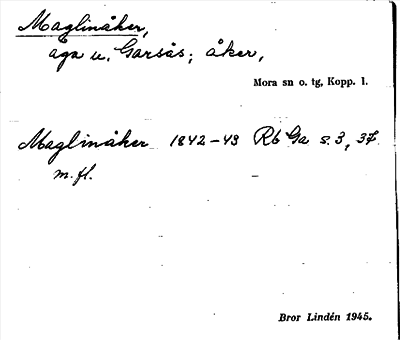 Maglinåker,
äga u. Garsås; åker,
Mora sn o. tg, Kopp. l.
Maglinåker 1842-43 Rb Ga s. 3, 37
m. fl.
Bror Lindén 1945.